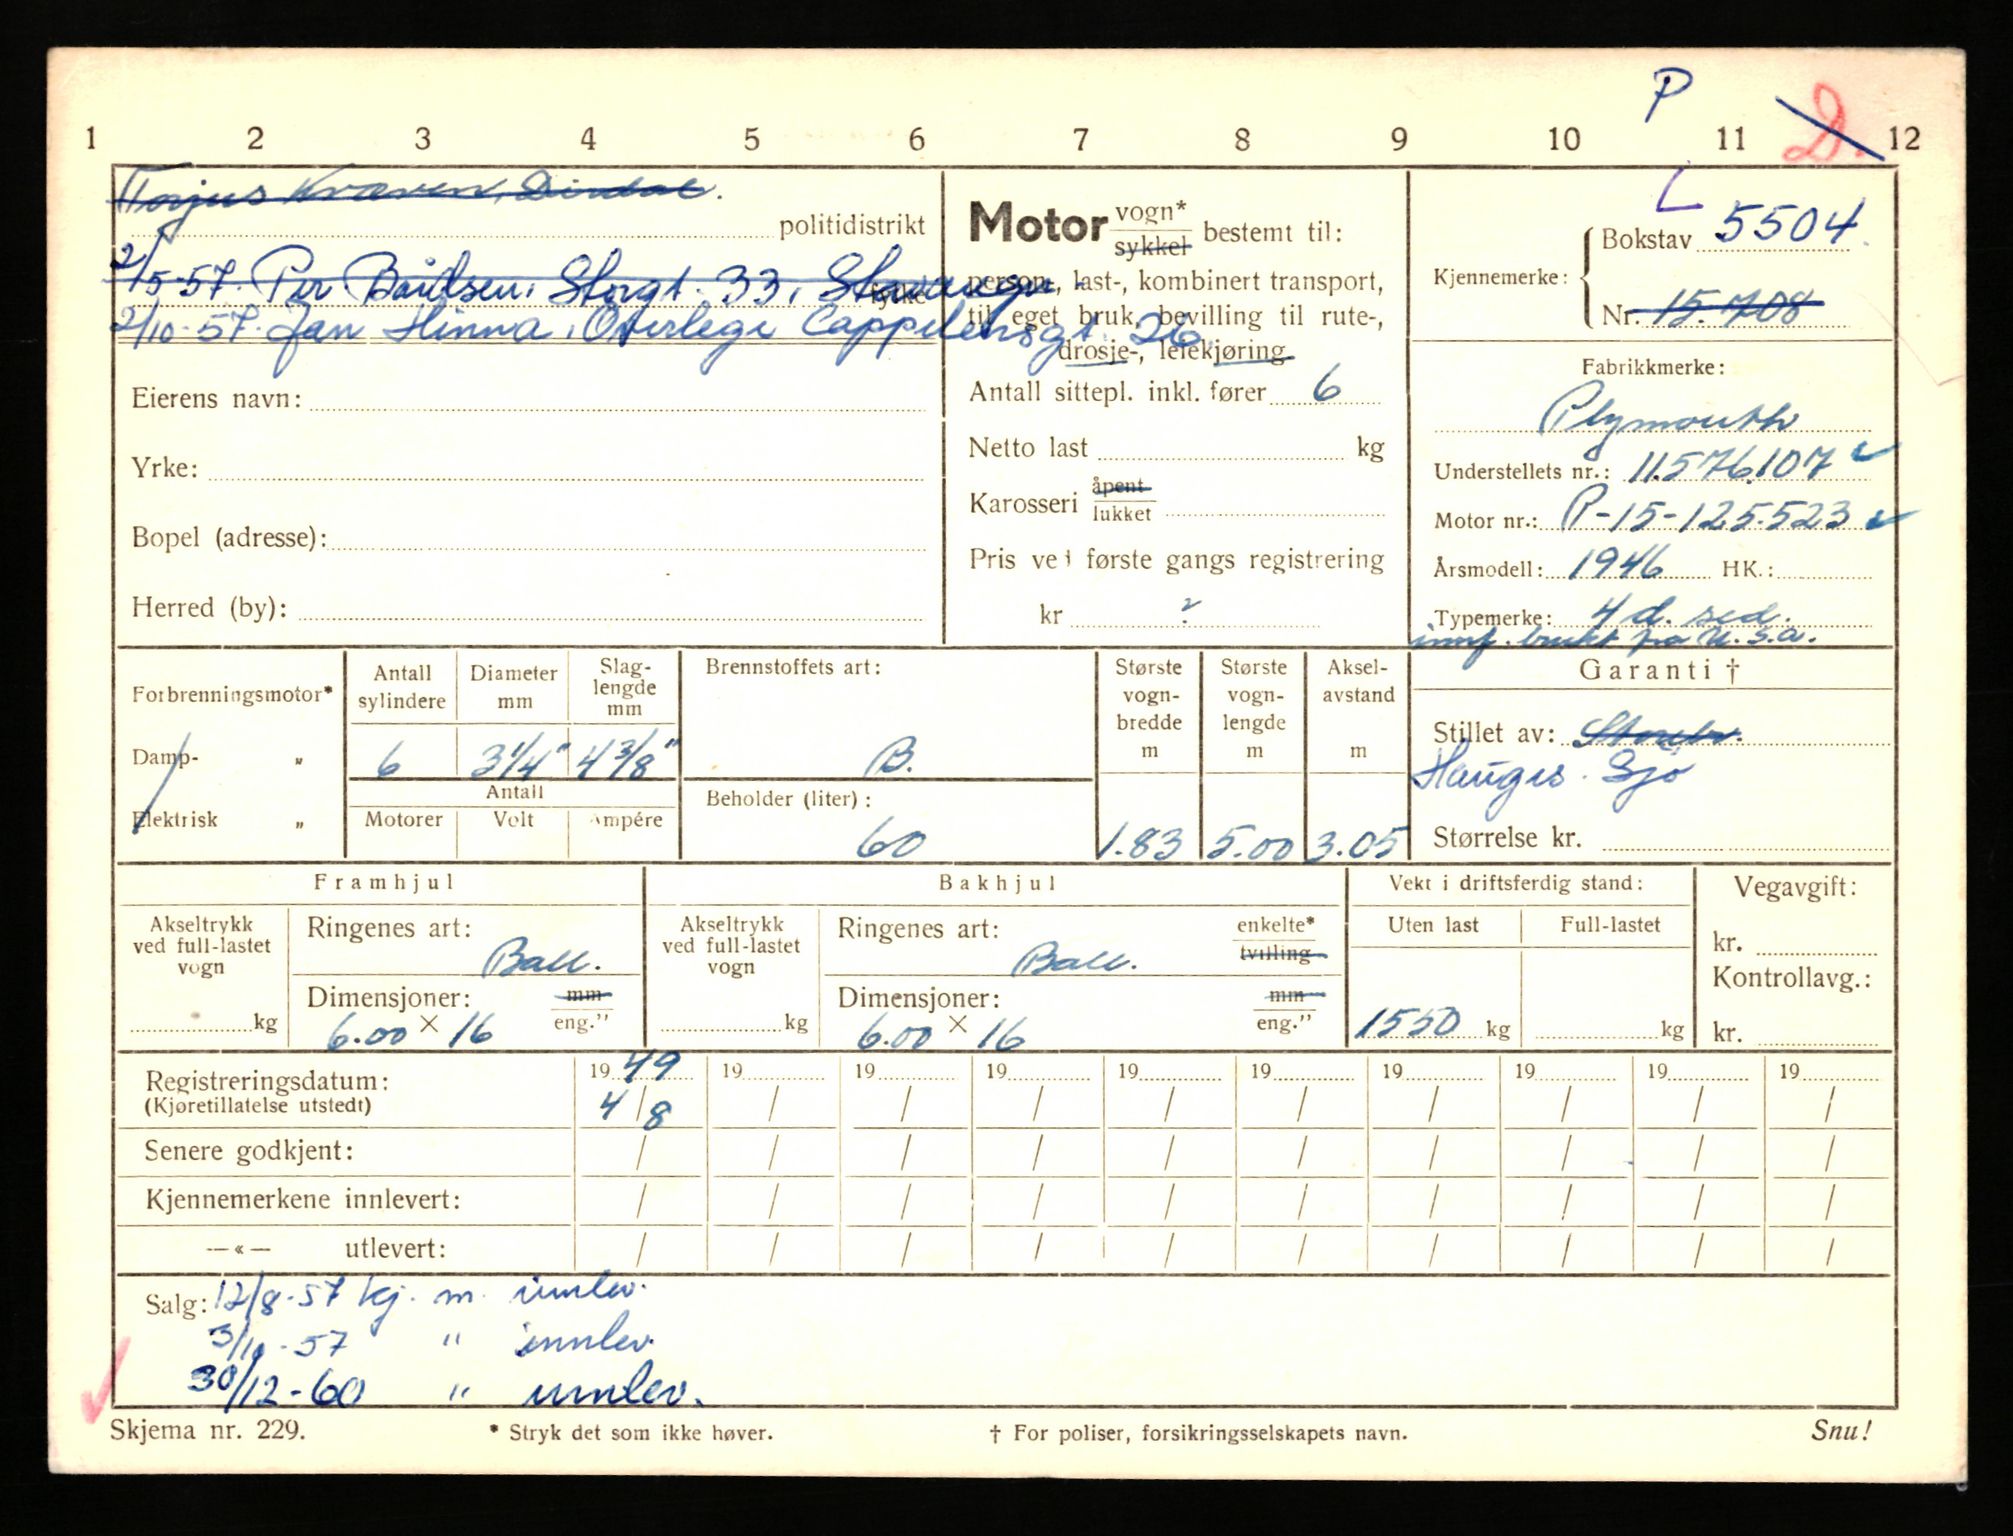 P D.
1 2 3 4 5 6 7 8 9 10 11 12
Torjus Kvæven, Dirdal.
politidistrikt
2/5-57. Per Bårdsen, Storgt. 33, Stavanger
fylke
2/10-57. Jan Hinna, Overlege Cappelensgt. 26
Eierens navn:
Yrke:
Bopel (adresse):
Herred (by):
Motor vogn* sykkel bestemt til:
person-, last-, kombinert transport,
til eget bruk, bevilling til rute-,
drosje-, leiekjøring
Antall sittepl. inkl. fører 6
Netto last kg
Karosseri åpent lukket
Pris ved første gangs registrering
kr ?
L
Kjennemerke: Bokstav 5504
Nr. 15.708
Fabrikkmerke:
Plymouth
Understellets nr.: 11.576.107
Motor nr.: P-15-125.523
Årsmodell: 1946 HK.:
Typemerke: 4 d. sed.
innf. brukt fra U.S.A.
Forbrenningsmotor*
Damp- „
Elektrisk „
Antall sylindere
Diameter mm
Slag-lengde mm
6 3 1/4" 4 3/8"
Antall
Motorer Volt Ampére
Brennstoffets art:
B.
Beholder (liter):
60
Største vogn-bredde m
1.83
Største vogn-lengde m
5.00
Aksel-avstand m
3.05
Garanti †
Stillet av: Storebr.
Hauges. Sjø
Størrelse kr.
Framhjul
Akseltrykk ved full-lastet vogn
kg
Ringenes art:
Ball.
Dimensjoner: mm eng."
6.00 × 16
Bakhjul
Akseltrykk ved full-lastet vogn
kg
Ringenes art: enkelte* tvilling
Ball.
Dimensjoner: mm eng."
6.00 × 16
Vekt i driftsferdig stand:
Uten last Full-lastet
1550 kg kg
Vegavgift:
kr.
Kontrollavg.:
kr.
Registreringsdatum: 1949 19 19 19 19 19 19 19 19 19
(Kjøretillatelse utstedt) 4/8 / / / / / / / / /
Senere godkjent: / / / / / / / / / /
Kjennemerkene innlevert: / / / / / / / / / /
—«— utlevert: / / / / / / / / / /
Salg: 12/8-57 kj. m. innlev.
3/10-57 " innlev.
30/12-60 " innlev.
Skjema nr. 229.
* Stryk det som ikke høver.
† For poliser, forsikringsselskapets navn.
Snu!